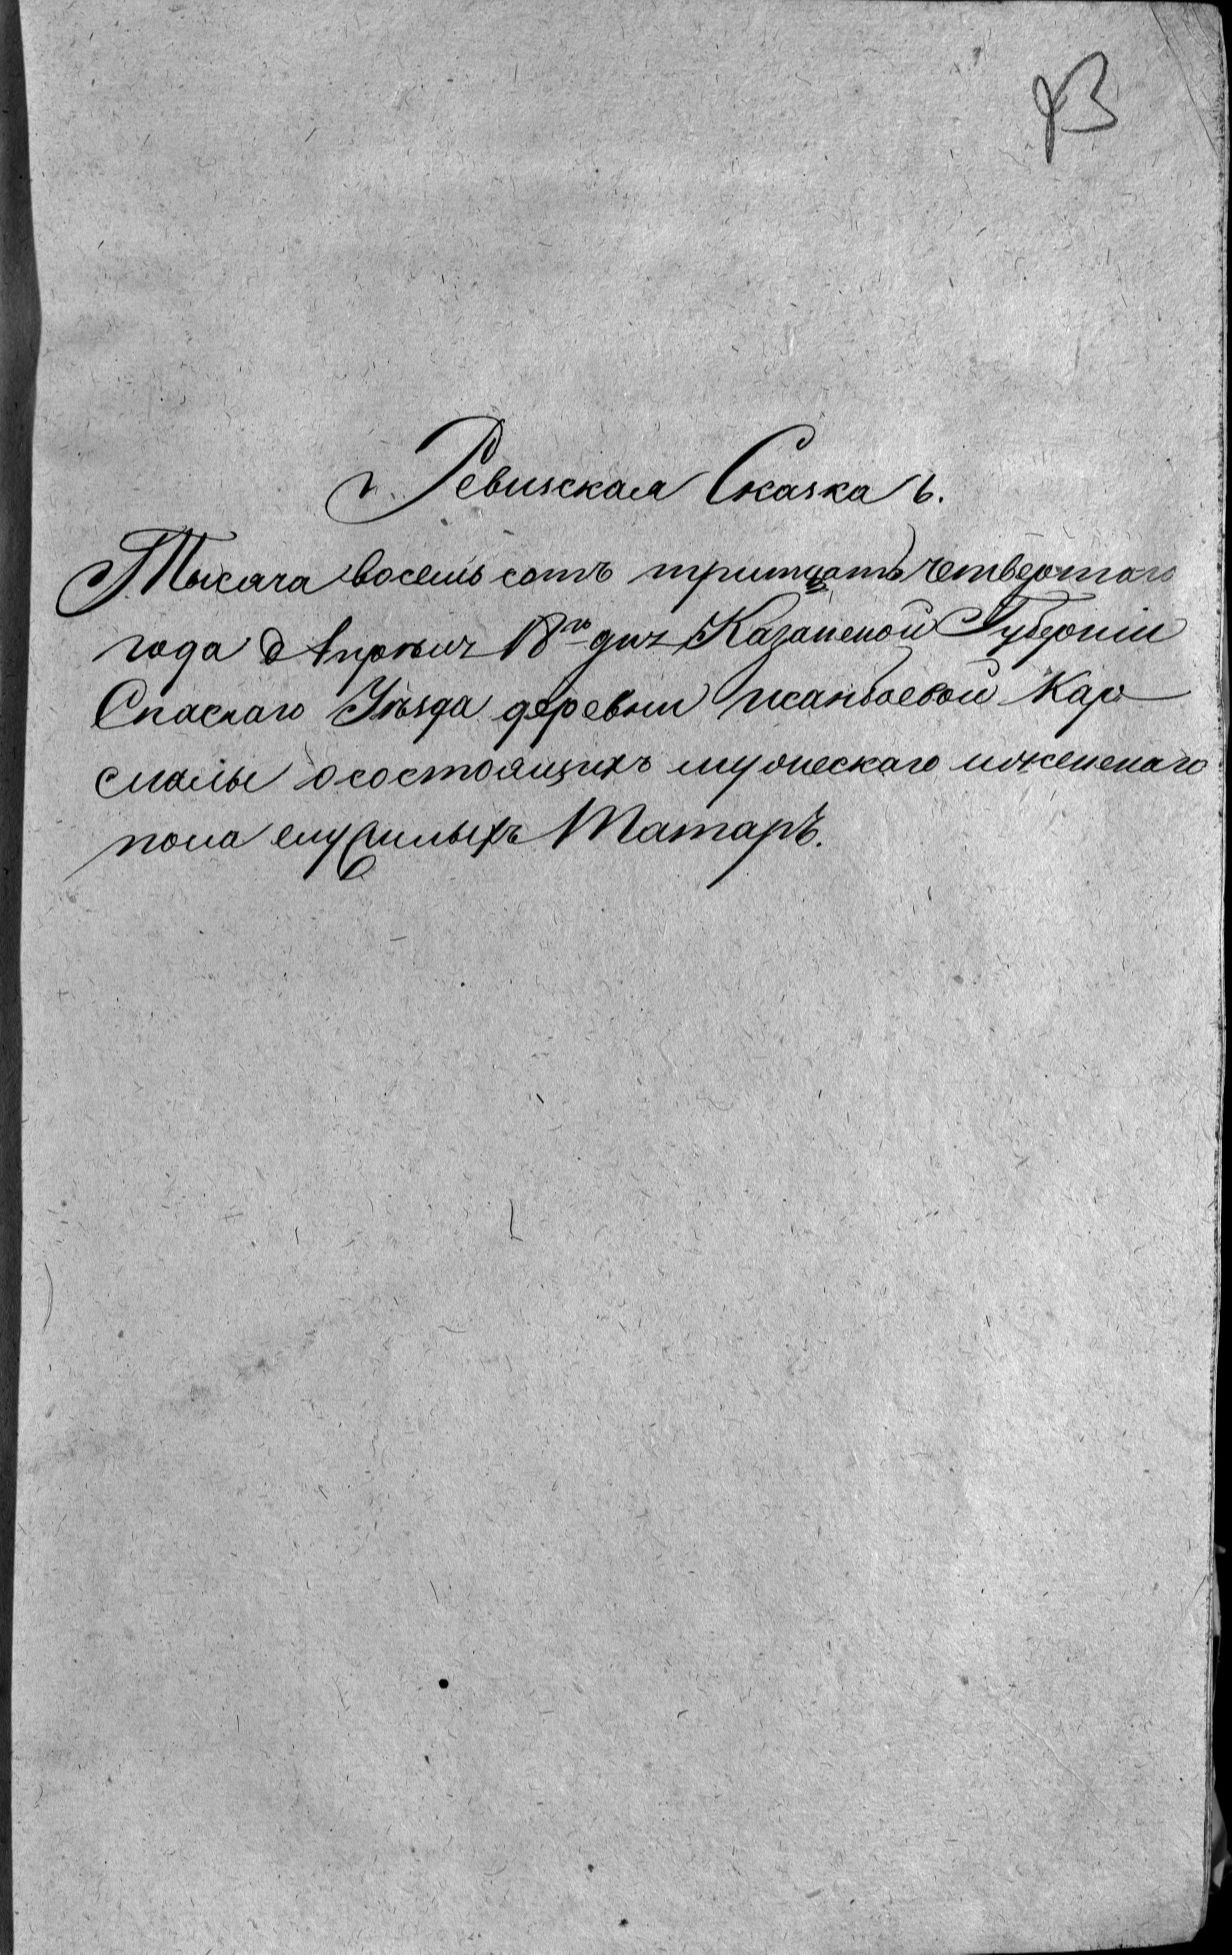 93
Ревизская Сказка
Тысяча восемь сотъ тритцать четвертаго
года Апреля 18го дня Казанской Губерніи
Спаскаго Уѣзда деревни Исанбаевой Кар
смалы о состоящихъ мужескаго и женскаго
пола служилыхъ Татаръ.